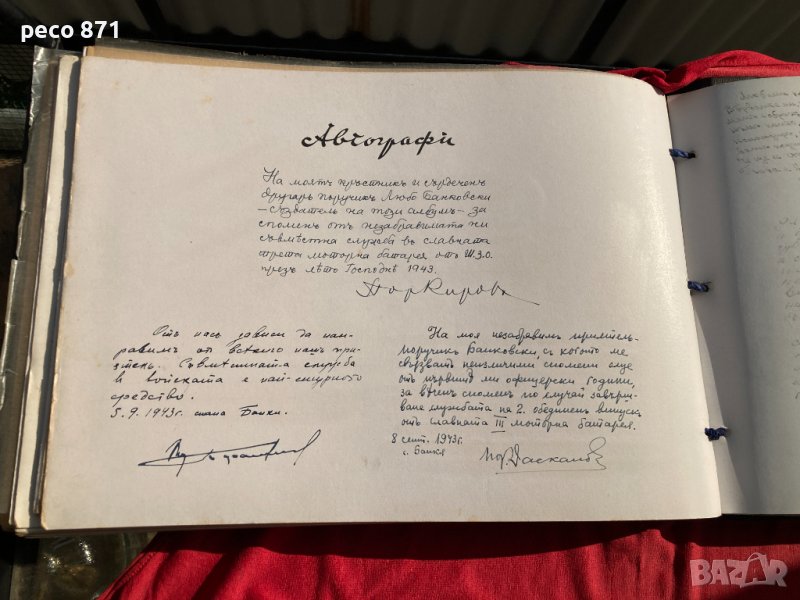 peco 871
Автографи
На моятъ кръстникъ и сърдеченъ
другарь поручикъ Любо Банковски
– създатель на този албумъ – за
споменъ отъ незабравимата ни
съвмѣстна служба въ славната
трета моторна батарея отъ Ш.З.О.
презъ лѣто Господне 1943.
Пор Кировъ
Отъ насъ зависи да нап-
равимъ от всѣкого нашъ при-
ятель. Съвмѣстната служба
в войската е най-сигурното
средство.
5.9.1943г. гара Банки.
На моя незабравимъ приятель
поручикъ Банковски, съ когото ме
свързватъ неизлични спомени още
отъ първитѣ ми офицерски години,
за вѣченъ споменъ по случай завърш-
ване службата на 2. обединенъ випускъ
отъ славната III моторна батарея.
8 септ. 1943г.
с. Банкя
Пор. Даскаловъ
BAZAR